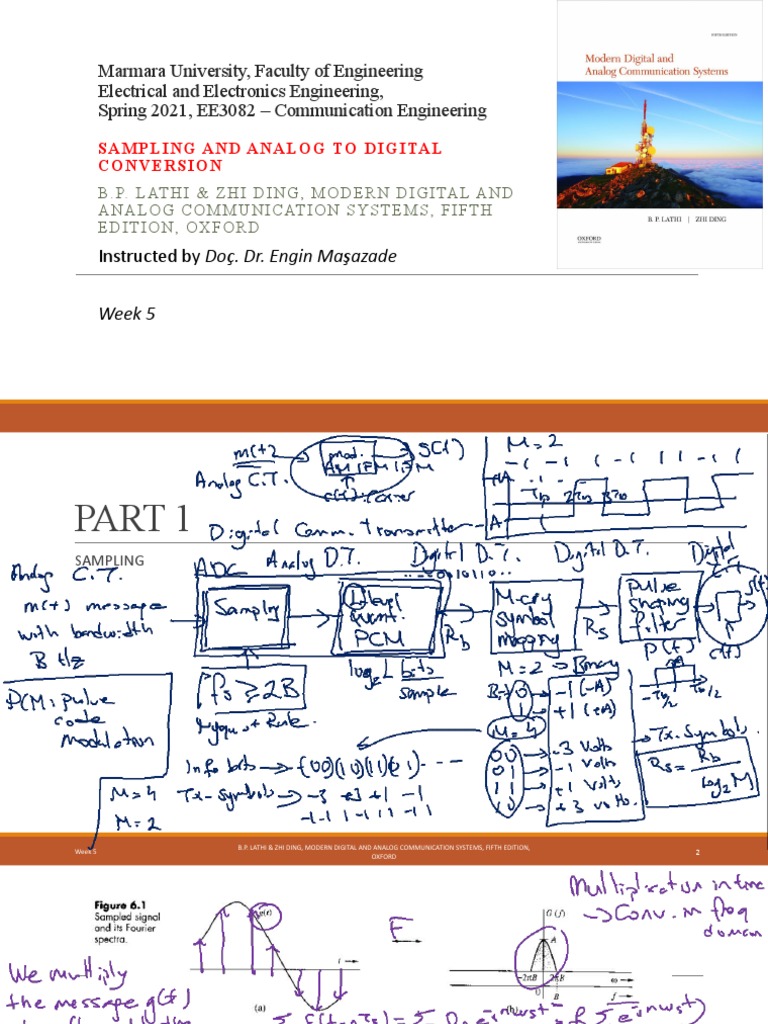 Marmara University, Faculty of Engineering
Electrical and Electronics Engineering,
Spring 2021, EE3082 – Communication Engineering
SAMPLING AND ANALOG TO DIGITAL
CONVERSION
B.P. LATHI & ZHI DING, MODERN DIGITAL AND
ANALOG COMMUNICATION SYSTEMS, FIFTH
EDITION, OXFORD
Instructed by Doç. Dr. Engin Maşazade
Week 5
Modern Digital and
Analog Communication Systems
B. P. LATHI | ZHI DING
OXFORD
m(t)
mod.
AM/FM/PM
S(t)
Analog C.T.
c(t) carrier
M=2
-1 -1 1 -1 1 1 -1 1
A
Tb 2Tb 3Tb
-A
PART 1
SAMPLING
Digital Comm. Transmitter
Analog C.T.
ADC
Analog D.T.
Digital D.T.
Digital D.T.
Digital
C.T.
...0010110..
m(t) message
with bandwidth
B Hz
Sampling
L level
quant.
PCM
Rb
M-ary
symbol
mapping
Rs
Pulse
shaping
filter
S(t)
c(t)
P(t)
-Tb/2 Tb/2
fs ≥ 2B
Nyquist Rule.
log2 L bits
sample
M=2 → Binary
0 → -1 (-A)
1 → +1 (+A)
M=4
00 → -3 Volts
01 → -1 Volts
10 → +1 Volts
11 → +3 Volts.
Tx-Symbols.
Rs = Rb
log2 M
PCM: pulse
code
modulation
Info bits → (00)(10)(11)(01)---
M=4 Tx-Symbols → -3
M=2
Week 5
B.P. LATHI & ZHI DING, MODERN DIGITAL AND ANALOG COMMUNICATION SYSTEMS, FIFTH EDITION,
OXFORD
2
Figure 6.1
Sampled signal
and its Fourier
spectra.
g(t)
t
(a)
F
G(f)
A
-2πB 2πB
ω
0
B
f
(b)
Multiplication in time
→ Conv. in freq
domain
We multiply
the message g(t)